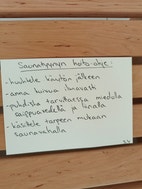 Saunatyynyn hoito-ohje:
- huuhtele käytön jälkeen
- anna kuivua ilmavasti
- puhdista tarvittaessa miedolla
saippuavedellä ja
- käsittele tarpeen mukaan
saunavahalla